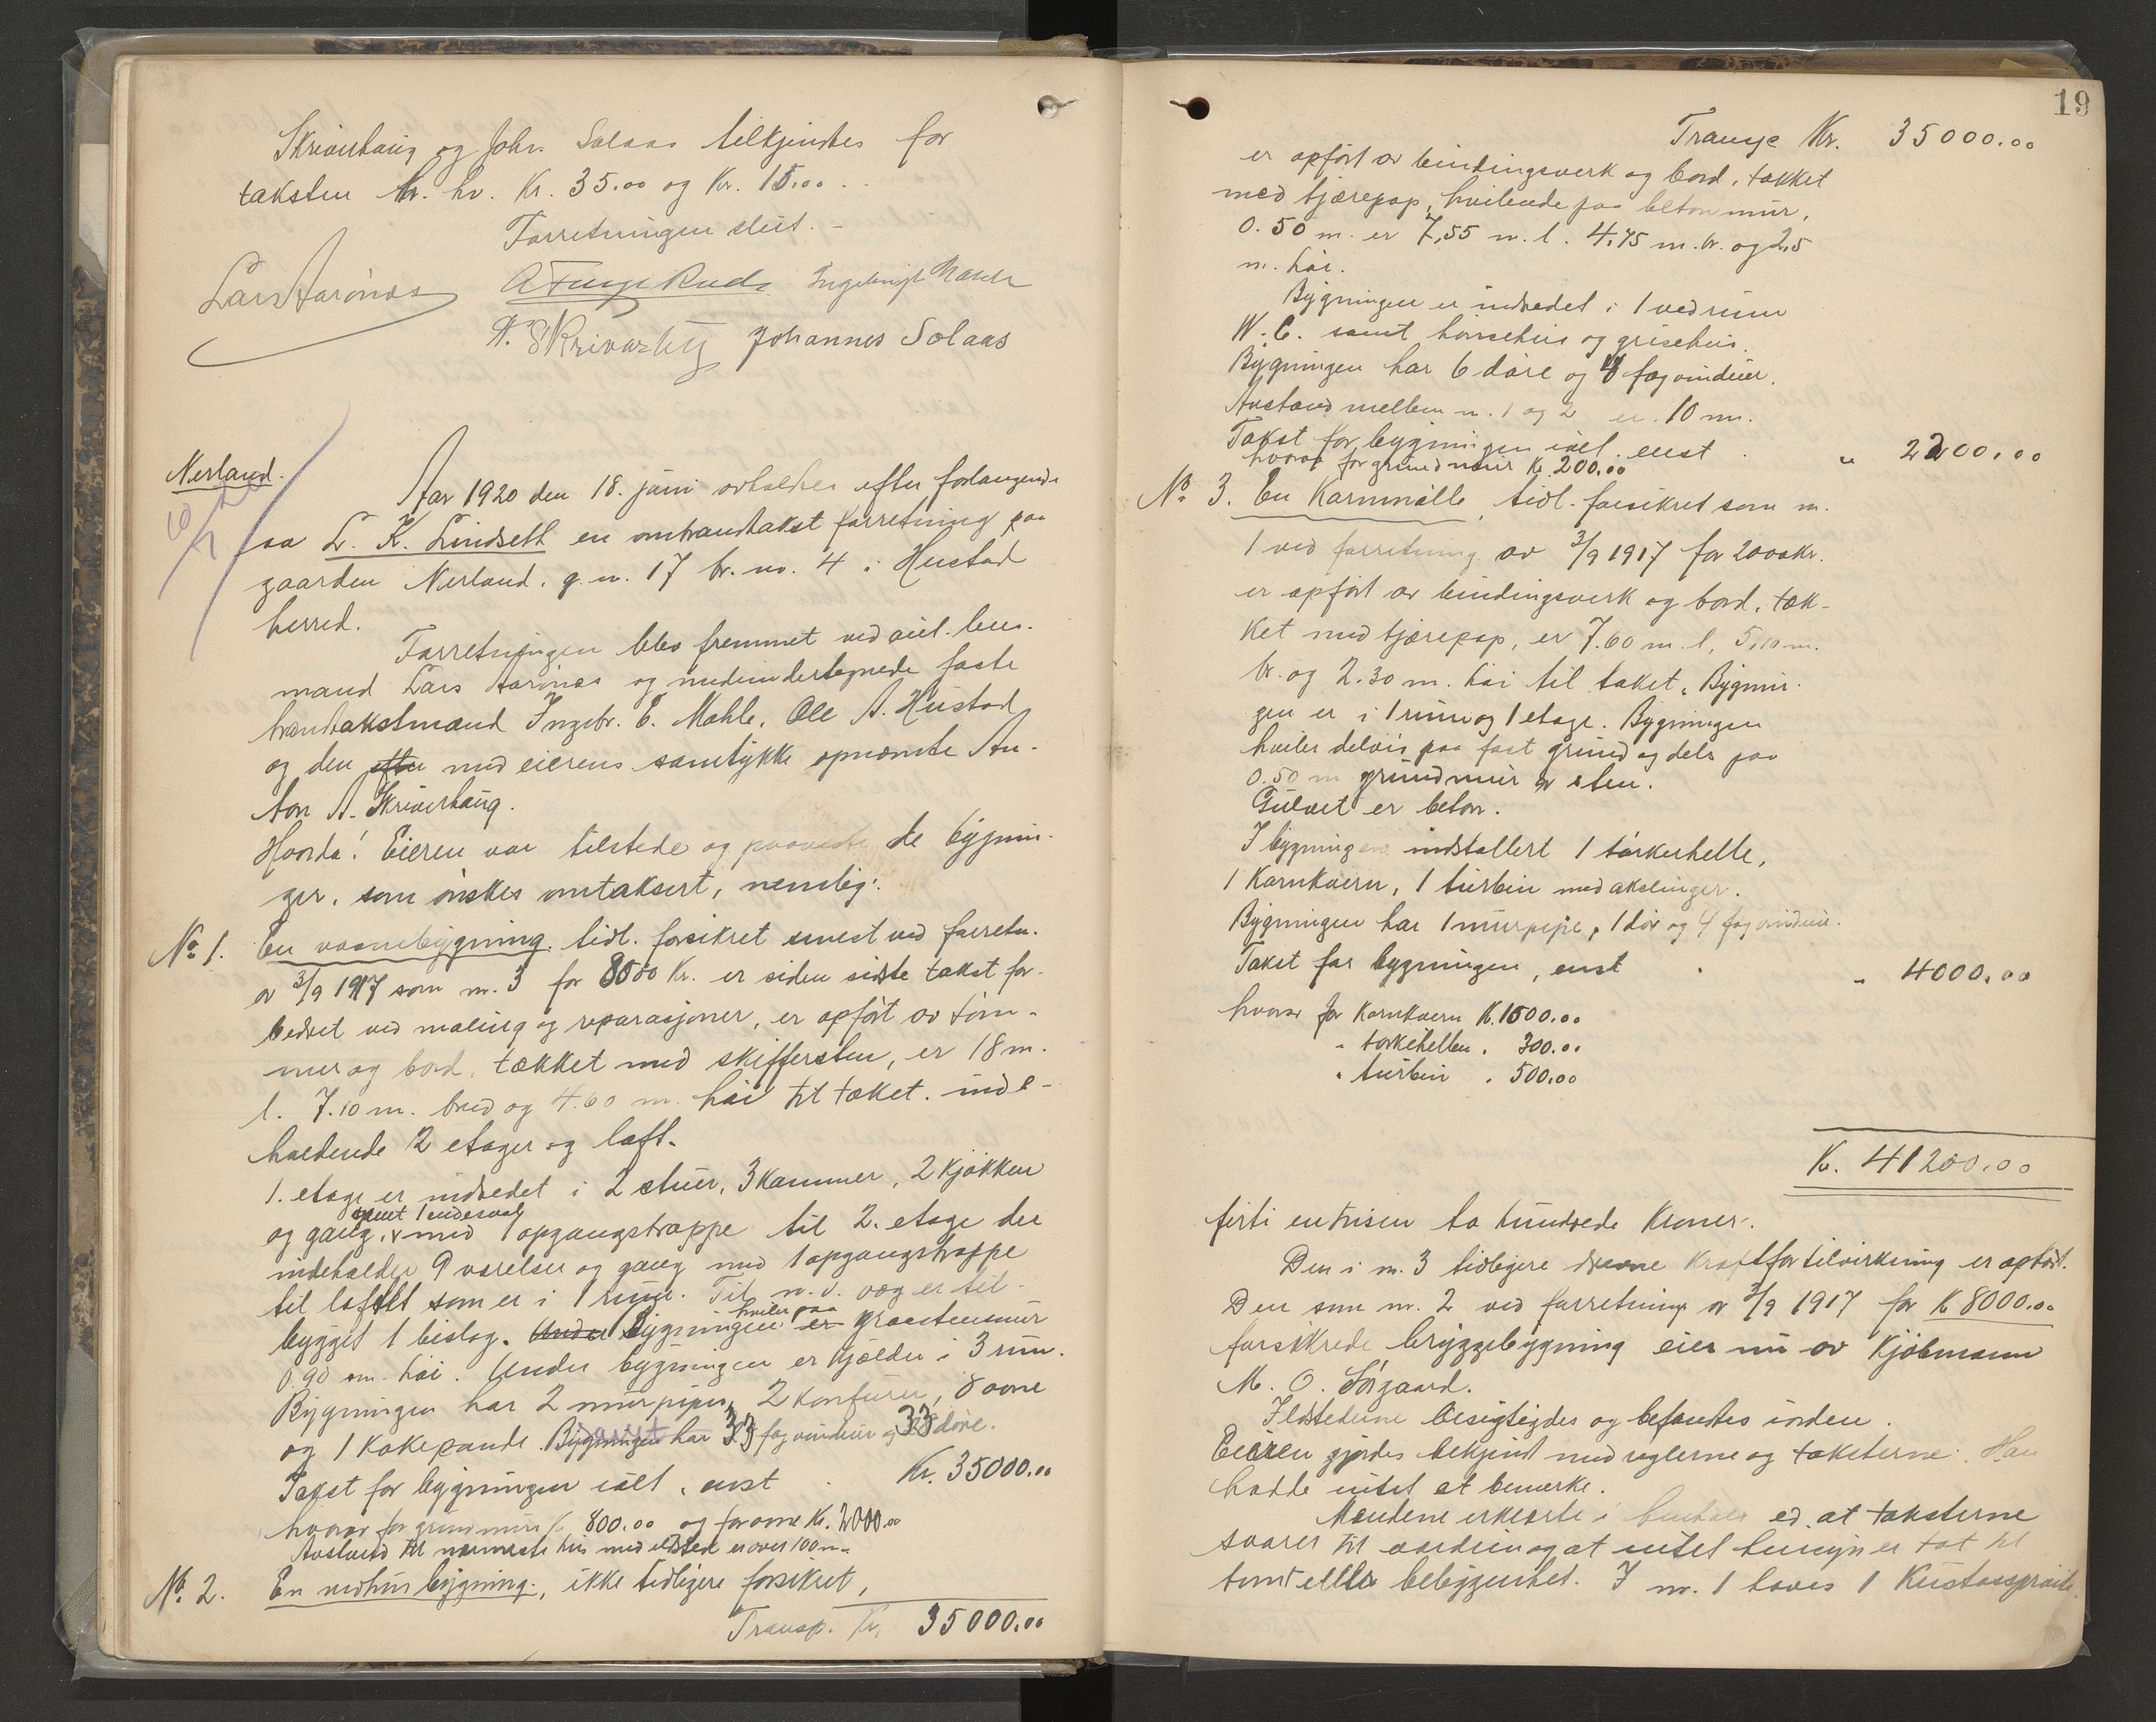 Skrivərhaug og Johs. Solaas tilkjendtes for
taksten hr. hv. Kr. 35.00 og Kr. 15.00.
Forretningen slut. -
Lars Aarönæs
Johannes Solaas
Nerland.
Aar 1920 den 18. juni avholdtes efter forlangende
fra L. K. Lindseth en ombrandtakst forretning paa
gaarden Nerland, g. n. 17 br. no. 4 i Hustad
herred.
Forretningen blev fremmet ved aut. lens-
mand Lars Aarönæs og medundertegnede faste
brandtakstmænd Ingebr. E. Mahle, Ole A. Hustad
og den efter med eierens samtykke opnævnte An-
ton A. Skriverhaug.
Hvorda! Eieren var tilstede og paaviste de bygnin-
ger, som ønskes omtaksert, nemlig:
No 1. En vaanebygning, tidl. forsikret senest ved forretn.
av 3/9 1917 som nr. 3 for 8500 Kr. er siden sidste takst for-
bedret ved maling og reparasjoner, er opført av töm-
mer og bord, tækket med skiffersten, er 18 m.
l. 7.10 m. bred og 4.60 m. høi til taket. inde-
holdende 2 etager og loft.
1. etage er indredet i 2 stuer, 3 kammer, 2 kjøkken
samt 1
og gang, med 1 opgangstrappe til 2. etage der
indeholder 9 værelser og gang med 1 opgangstrappe
til loftet som er i 1 rum. Til n. v. væg er til-
hviler paa
bygget 1 bislag. Under Bygningen er graastensmur
0.90 m. høi. Under bygningen er kjelder i 3 rum.
Bygningen har 2 murpiper, 2 komfurer, 8 ovne
og 1 kokepande. Bygningen har 33 fag vinduer og 33 døre.
Takst for bygningen ialt, enst . Kr. 35000.00
hvorav for grundmur Kr. 800.00 og for ovne Kr. 2000.00
Avstand til nærmeste hus med ildsted er over 100 m.
No. 2. En vedhusbygning, ikke tidligere forsikret,
Transp. Kr. 35000.00
19
Transp Kr. 35000.00
er opført av bindingsverk og bord, tækket
med tjærepap, hvilende paa beton mur,
0.50 m. er 7,55 m. l. 4,75 m. br. og 2,5
m. høi.
Bygningen er indredet i 1 vedrum
W. C. samt hönsehus og grisehus.
Bygningen har 6 döre og 4 fag vinduer.
Avstand mellem nr. 1 og 2 er 10 m.
Takst for bygningen ialt, enst . " 2200.00
hvorav for grundmur Kr. 200.00
No 3. En Kornmölle, tidl. forsikret som nr.
1 ved forretning av 3/9 1917 for 2000 Kr.
er opfört av bindingsverk og bord, tæk-
ket med tjærepap, er 7.60 m. l, 5,10 m.
br. og 2.30 m. höi til taket. Bygnin-
gen er i 1 rum og 1 etage. Bygningen
hviler delvis paa fast grund og dels paa
0.50 m grundmur av sten.
Gulvet er beton.
I bygningen indstallert 1 törkehelle,
1 Kornkvern, 1 turbin med akslinger.
Bygningen har 1 murpipe, 1 dör og 4 fag vinduer.
Takst for bygningen, enst . " 4000.00
hvorav for Kornkvern K. 1500.00
" törkehellen " 300.00
" turbin " 500.00
K. 41200.00
firti entusen to hundrede Kroner.
Den i nr. 3 tidligere drevne kraftfortilvirkning er ophört.
Den som nr. 2 ved forretning av 3/9 1917 for K 8000.00
forsikrede bryggebygning eies nu av Kjöbmann
M. O. Sörgaard.
Ildstederne besigtigdes og befandtes iorden.
Eieren gjordes bekjendt med reglerne og taksterne. Han
hadde intet at bemerke.
Mændene erklærte i henhold ed, at taksterne
svarer til værdien og at intet hensyn er tat til
tomt eller beliggenhet. I nr. 1 haves 1 Kustossprøite.